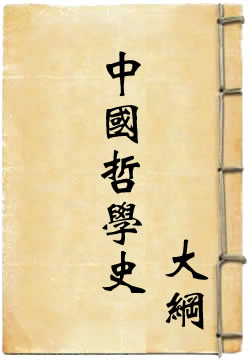 中國哲學史
大綱